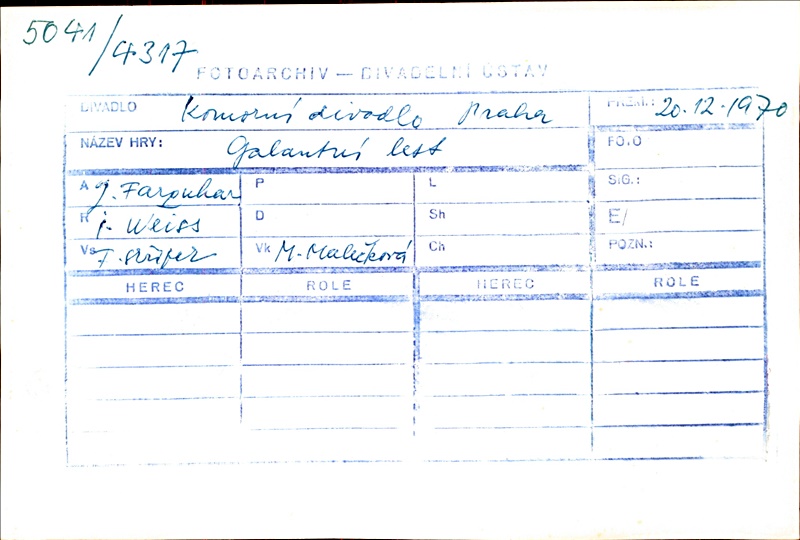 5041/4317
FOTOARCHIV — DIVADELNÍ ÚSTAV
DIVADLO Komorní divadlo Praha PREM.: 20.12.1970
NÁZEV HRY: Galantní lest FOTO
A G. Farquhar P L SIG.:
R J. Weiss D Sh E/
Vs F. Tröster Vk M. Malečková Ch POZN.:
HEREC ROLE HEREC ROLE